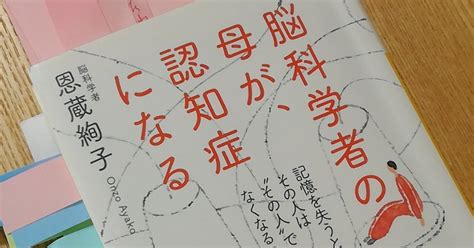 脳科学者の
母が、
認知症
になる
脳科学者
恩蔵絢子
Onzo Ayako
記憶を失うと
その人は
“その人”で
なくなる